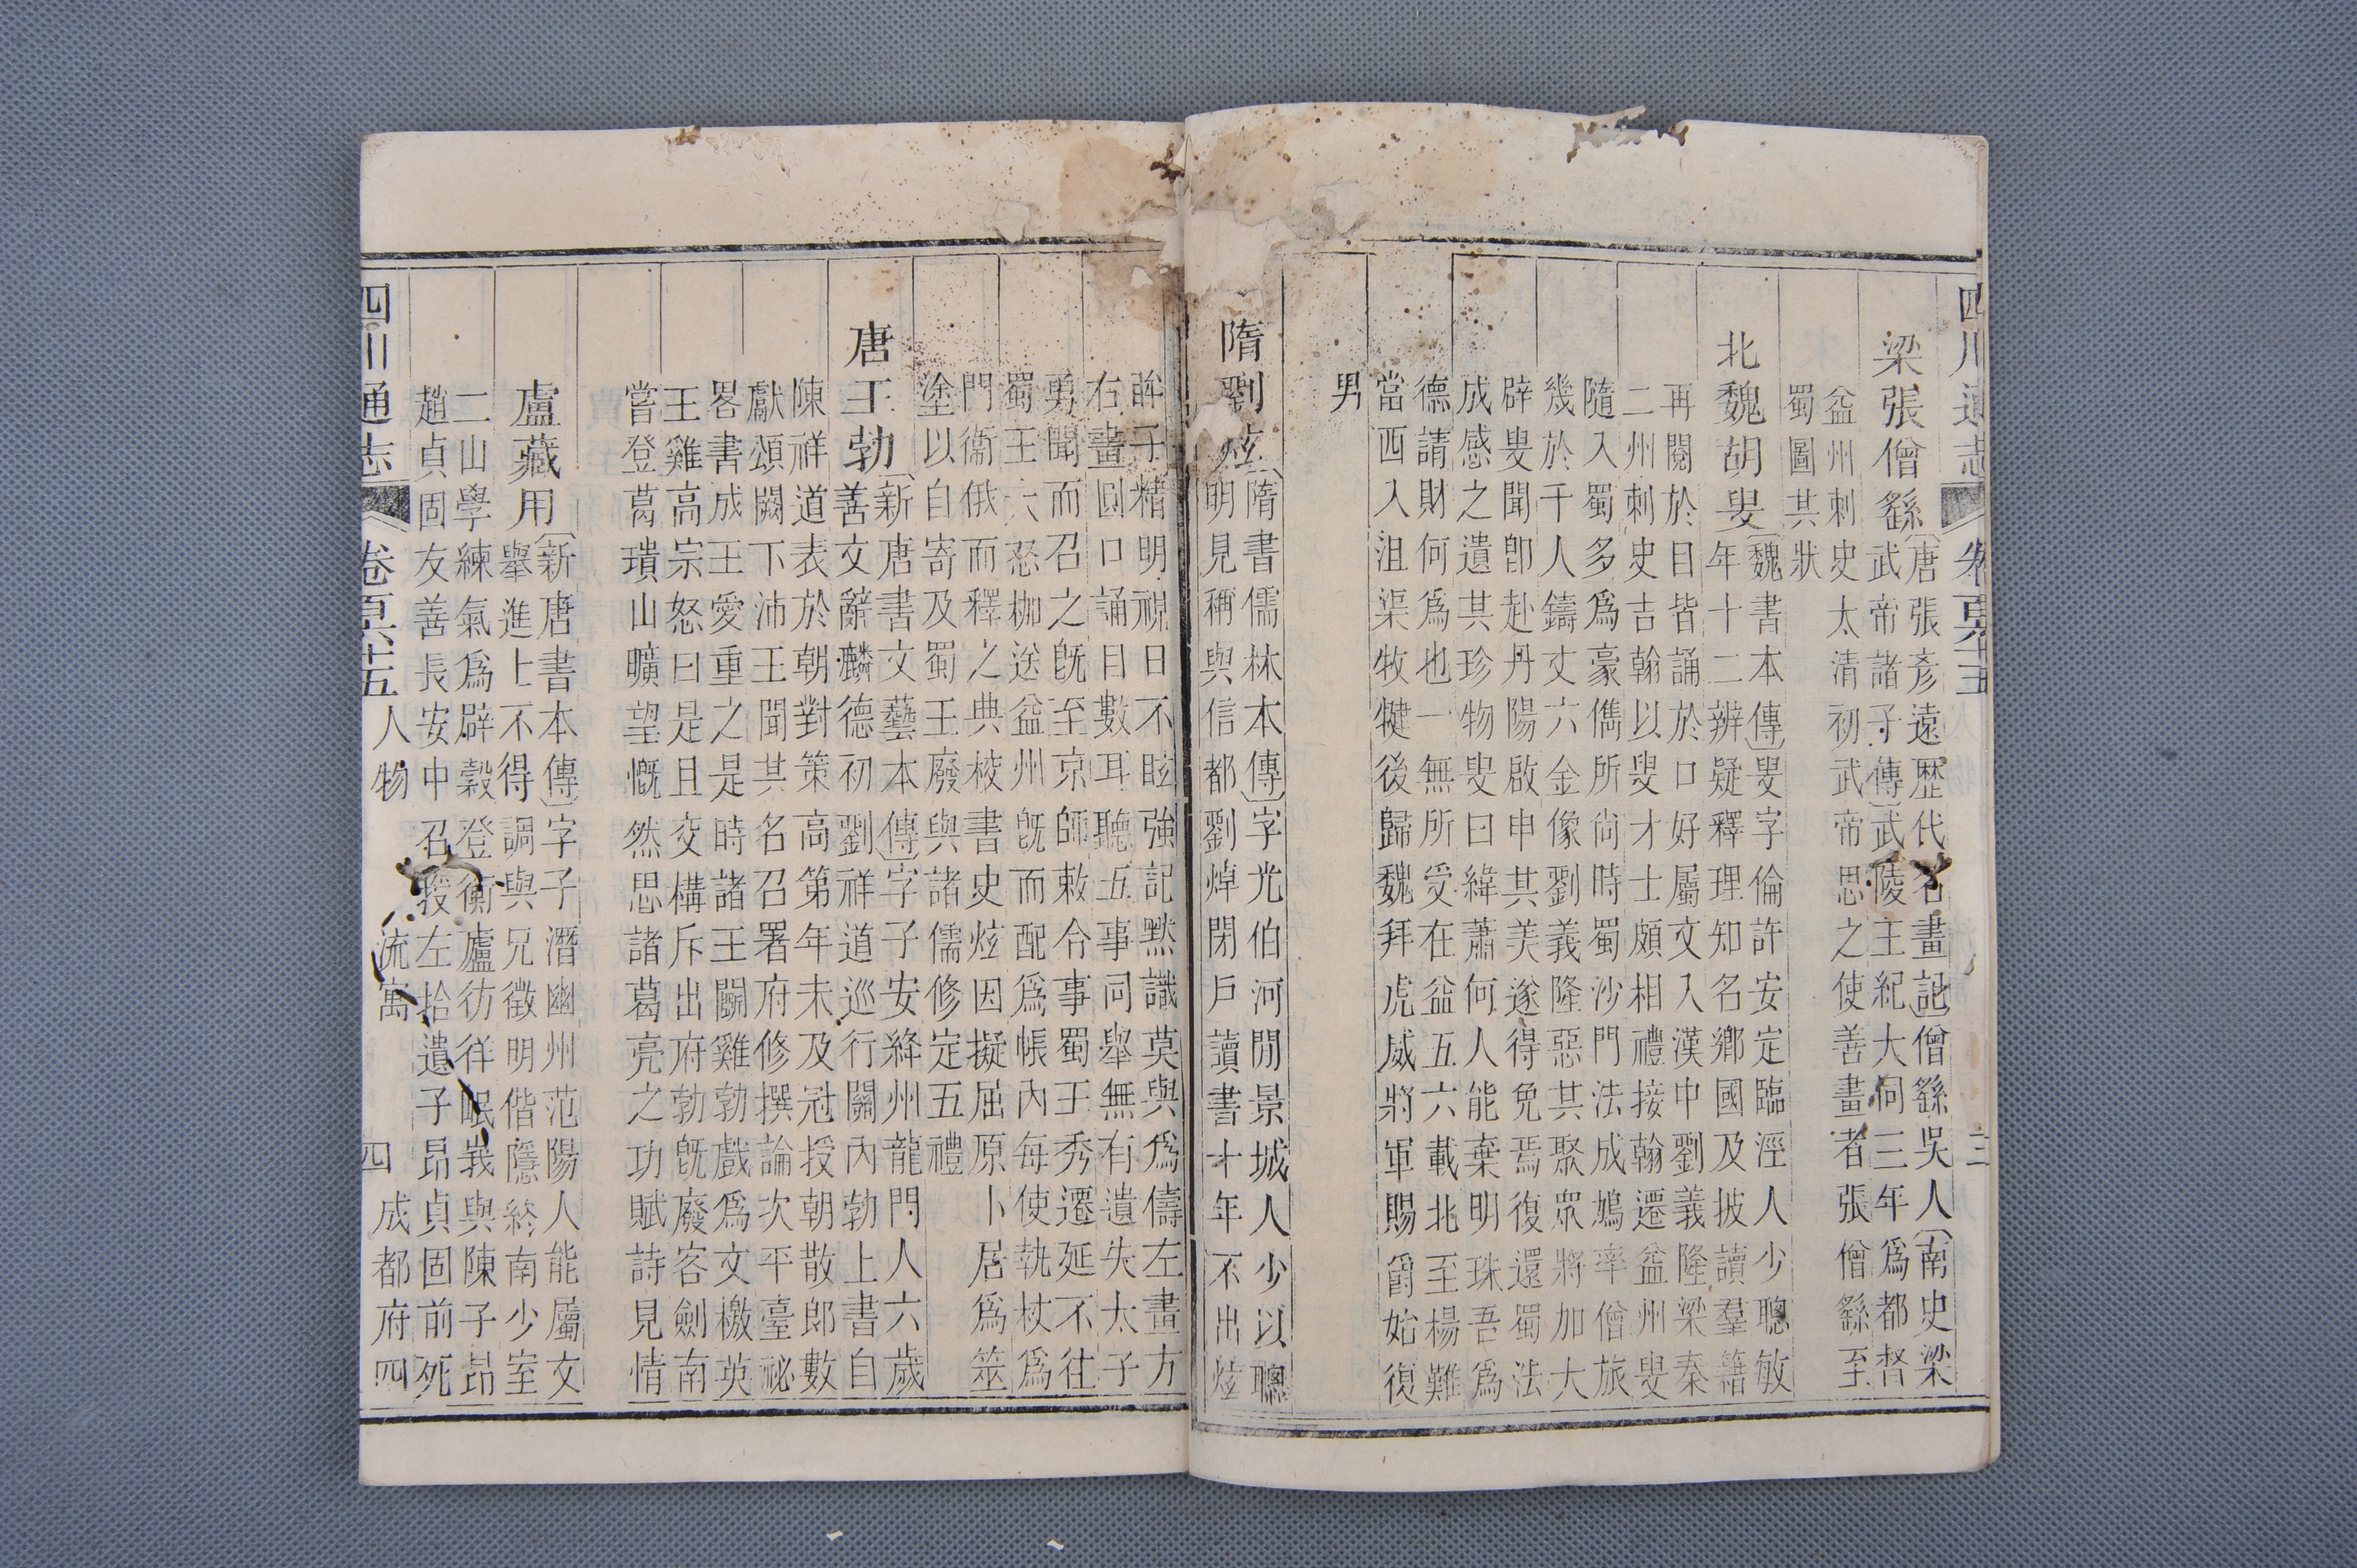 四川通志 卷一百六十五 三
梁張僧繇〔唐張彥遠歷代名畫記〕僧繇吳人〔南史梁
武帝諸子傳〕武陵王紀大同三年爲都督
益州刺史太清初武帝思之使善畫者張僧繇至
蜀圖其狀
北魏胡叟〔魏書本傳〕叟字倫許安定臨涇人少聰敏
年十二辨疑釋理知名鄉國及披讀羣籍
再閱於目皆誦於口好屬文入漢中劉義隆梁秦
二州刺史吉翰以叟才士頗相禮接翰遷益州叟
隨入蜀多爲豪儁所尙時蜀沙門法成鳩率僧旅
幾於千人鑄丈六金像劉義隆惡其聚眾將加大
辟叟聞卽赴丹陽啟申其美遂得免焉復還蜀法
成感之遺其珍物叟曰緯蕭何人能棄明珠吾爲
德請財何爲也一無所受在益五六載北至楊難
當西入沮渠牧犍後歸魏拜虎威將軍賜爵始復
男
隋劉炫〔隋書儒林本傳〕字光伯河閒景城人少以聰
明見稱與信都劉焯閉戶讀書十年不出炫
眸子精明視日不眩強記默識莫與爲儔左畫方
右畫圓口誦目數耳聽五事同舉無有遺失太子
勇聞而召之旣至京師敕令事蜀王秀遷延不往
蜀王大怒枷送益州旣而配爲帳內每使執杖爲
門衞俄而釋之典校書史炫因擬屈原卜居爲筮
塗以自寄及蜀王廢與諸儒修定五禮
唐王勃〔新唐書文藝本傳〕字子安絳州龍門人六歲
善文辭麟德初劉祥道巡行關內勃上書自
陳祥道表於朝對策高第年未及冠授朝散郎數
獻頌闕下沛王聞其名召署府修撰論次平臺祕
畧書成王愛重之是時諸王鬭雞勃戲爲文檄英
王雞高宗怒曰是且交構斥出府勃旣廢客劍南
嘗登葛瑣山曠望慨然思諸葛亮之功賦詩見情
盧藏用〔新唐書本傳〕字子潛幽州范陽人能屬文
舉進上不得調與兄徵明偕隱終南少室
二山學練氣爲辟穀登衡廬彷徉岷峩與陳子昂
趙貞固友善長安中召授左拾遺子昂貞固前死
四川通志 卷一百六十五 人物 流寓 四 成都府四